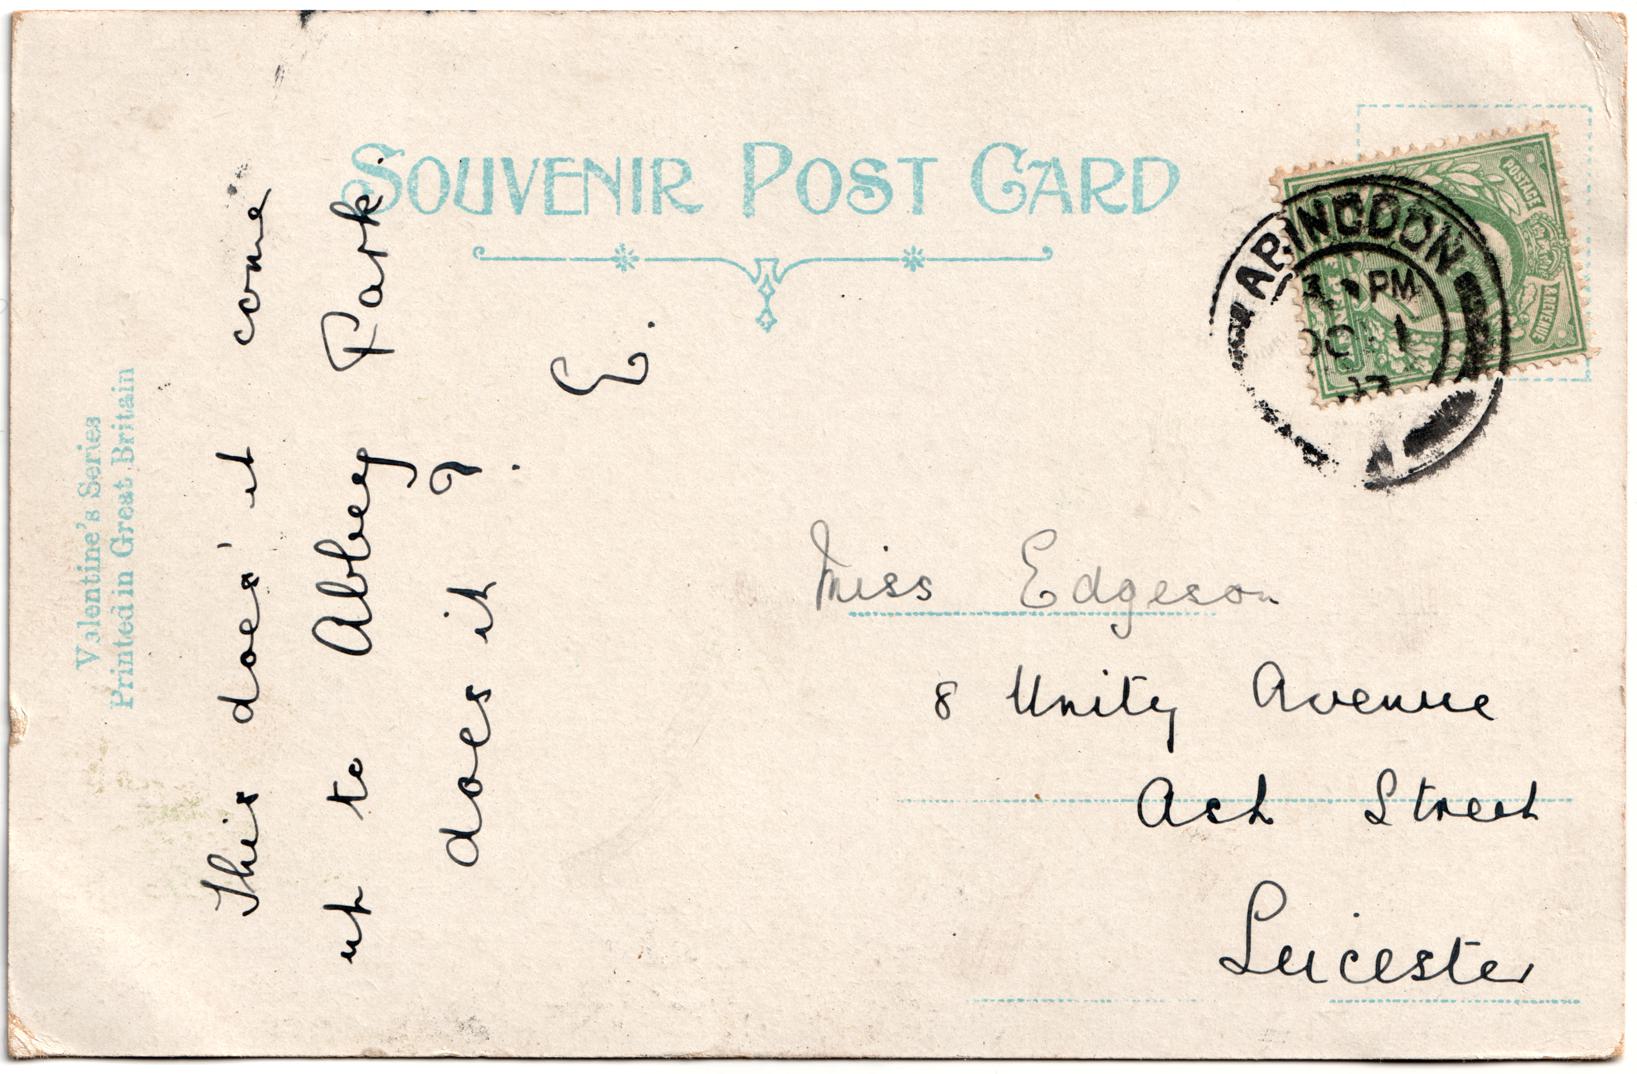 SOUVENIR POST CARD
Valentine's Series
Printed in Great Britain
This does' it come
up to Abbey Park
does it ?
E.
ABINGDON
PM
OC 1
07
POSTAGE
& REVENUE
Miss Edgeson
8 Unity Avenue
Ash Street
Leicester